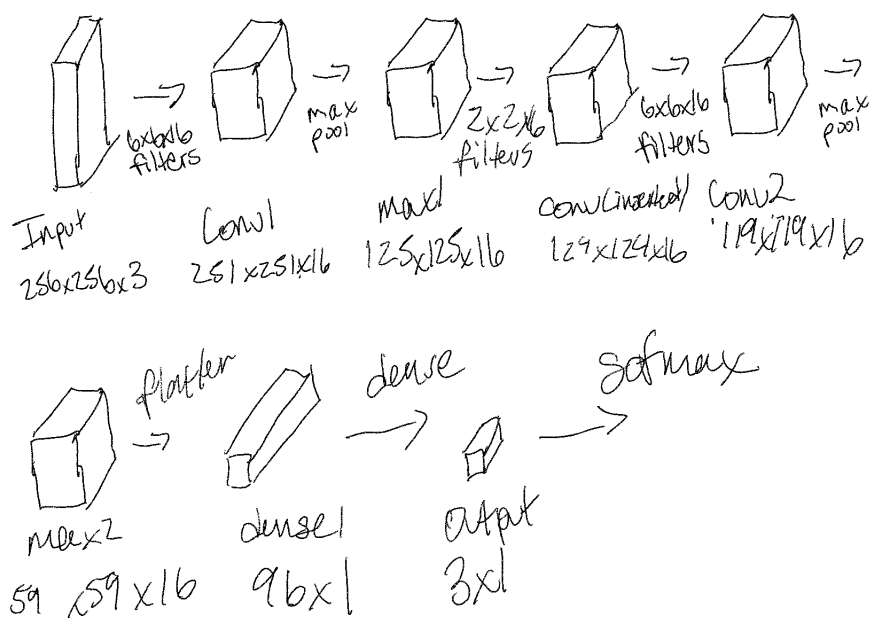 6x6x16
filters
max
pool
2x2x16
filters
6x6x16
filters
max
pool
Input
256x256x3
Conv1
251x251x16
max1
125x125x16
conv(inserted)
124x124x16
Conv2
119x119x16
flatten
dense
Sofmax
max2
59x59x16
dense1
96x1
output
3x1